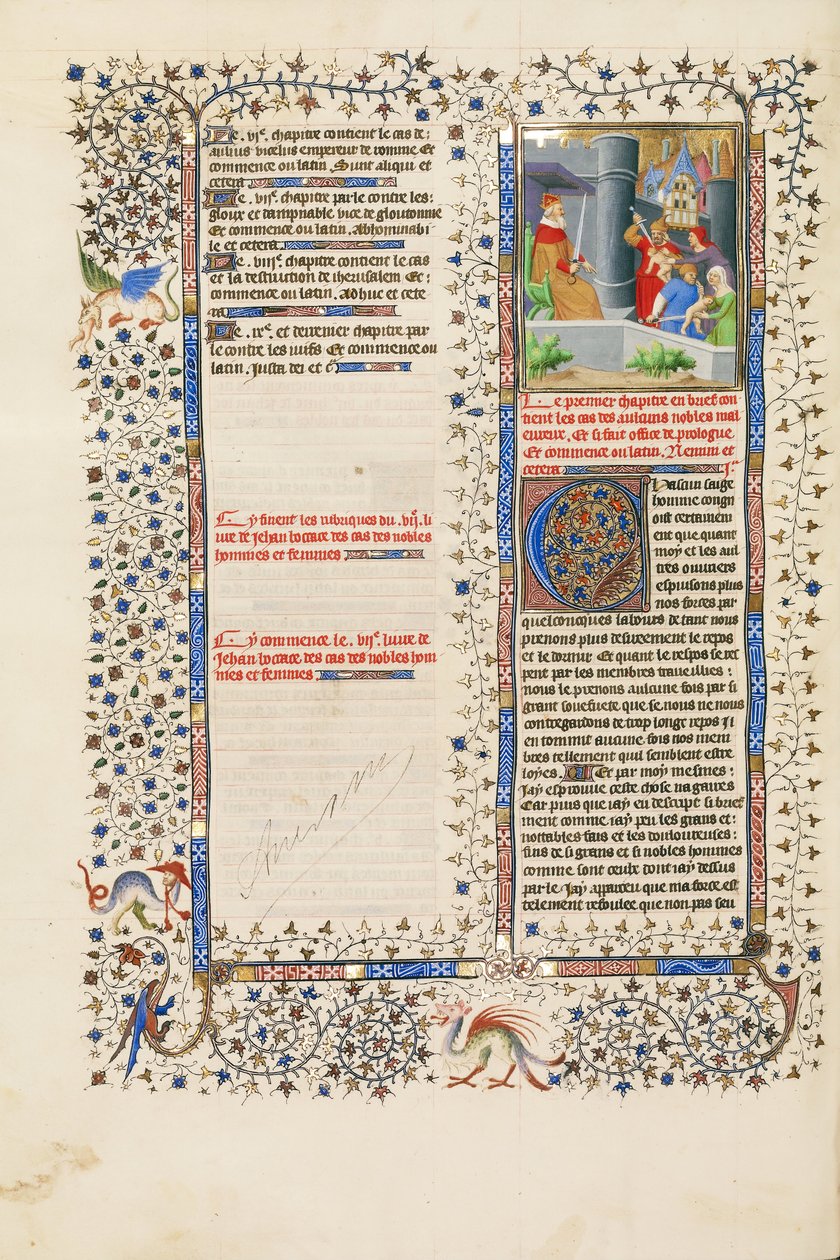 Le . vi.e chapitre contient le cas de :
aulus vicelius empereur de romme Et
commence ou latin . Sunt aliqui et
cetera
Le . vii.e chapitre parle contre les :
gloux et dampnable vice de gloutonnie
Et commence ou latin . Abhominabi
le et cetera .
Le . viii.e chapitre contient le cas
et la destruction de iherusalem Et :
commence ou latin . Adhuc et cete
ra
Le . ix.e et derrenier chapitre par
le contre les iuifs Et commence ou
latin . Justa dei et c̃
Cy finent les rubriques du . vii. li
ure de Jehan bocace des cas des nobles
hommes et femmes
Cy commence le . vii.e liure de
Jehan bocace des cas des nobles hom
mes et femmes
Le premier chapitre en brief con
tient les cas des aulcuns nobles mal
eureux . Et si fait office de prologue
Et commence ou latin . Nemini et
cetera
Chascun saige
homme congn
oist certainem
ent que quant
moy et les aul
tres ouuriers
espuisons plus
nos forces par
quelconcques labours de tant nous
prenons plus desireement le repos
et le dormir Et quant le respos se ret
pent par les membres traueillies :
nous le prenons aulcune fois par si
grant souefuete que se nous ne nous
contregardons de trop longz repos Il
en tommit aucune fois nos mem
bres tellement quil semblent estre
loyes . Et par moy mesmes :
Jay esprouue ceste chose nagaires
Car puis que iay en descript si brief
ment comme iay peu les grans et :
nottables fais et les douloureuses :
fins de si grans et si nobles hommes
comme sont ceulx dont iay dessus
parle Jay apparceu que ma force est
tellement refoulee que non pas seu